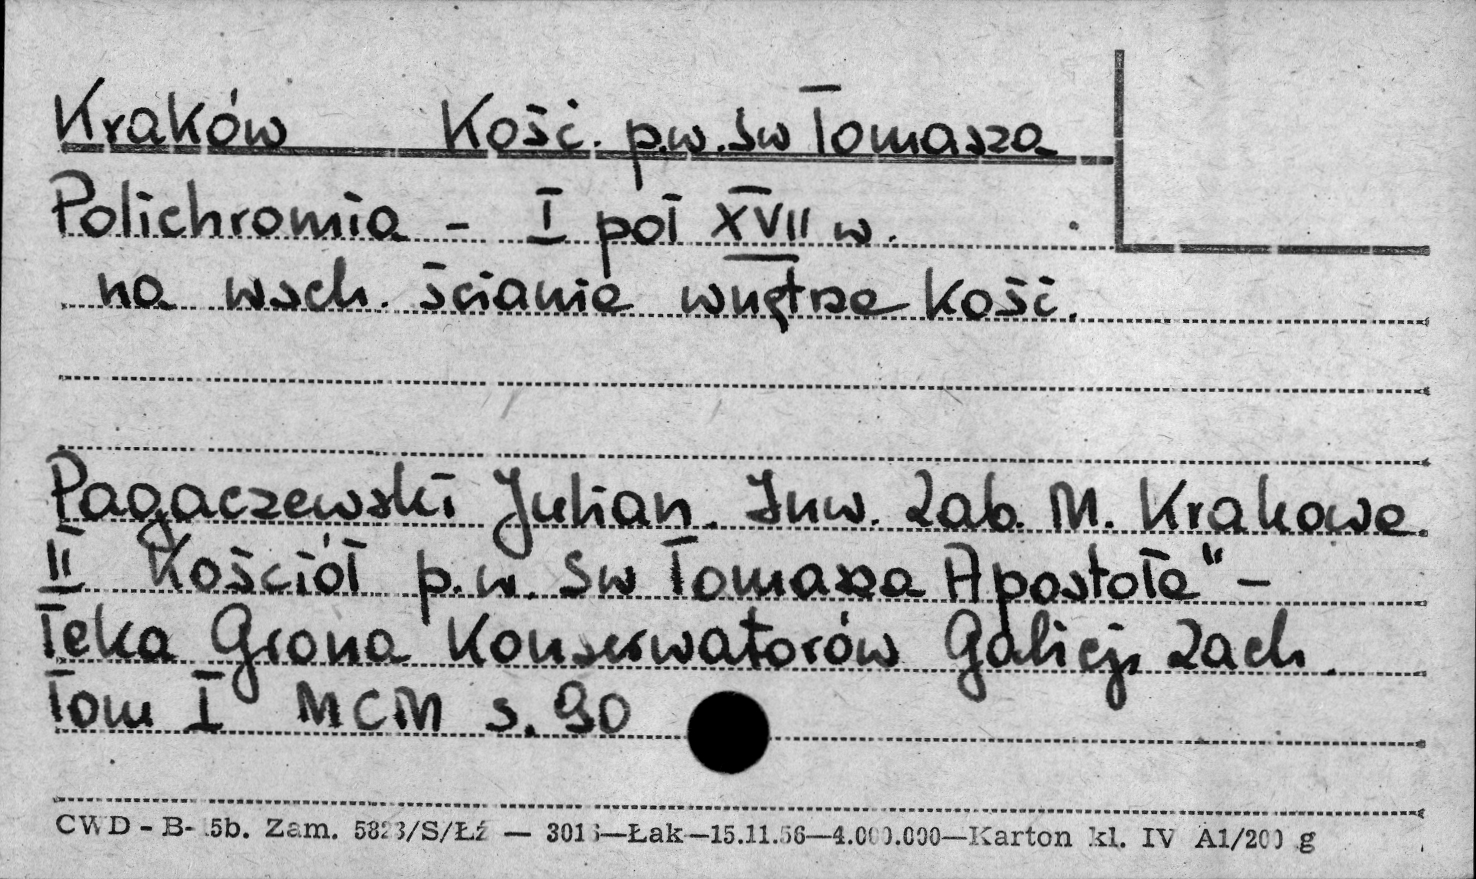 Kraków Kość. p.w. Św Tomasza
Polichromia - I poł XVII w.
na wsch. ścianie wnętrze kość.
Pagaczewski Julian. Inw. Zab. M. Krakowa.
II Kościół p.w. Św Tomasza Apostoła" -
Teka Grona Konserwatorów Galicji Zach.
Tom I MCM s. 90
CWD - B- 5b. Zam. 5823/S/Łź — 3016—Łak—15.11.56—4.000.000—Karton kl. IV A1/200 g